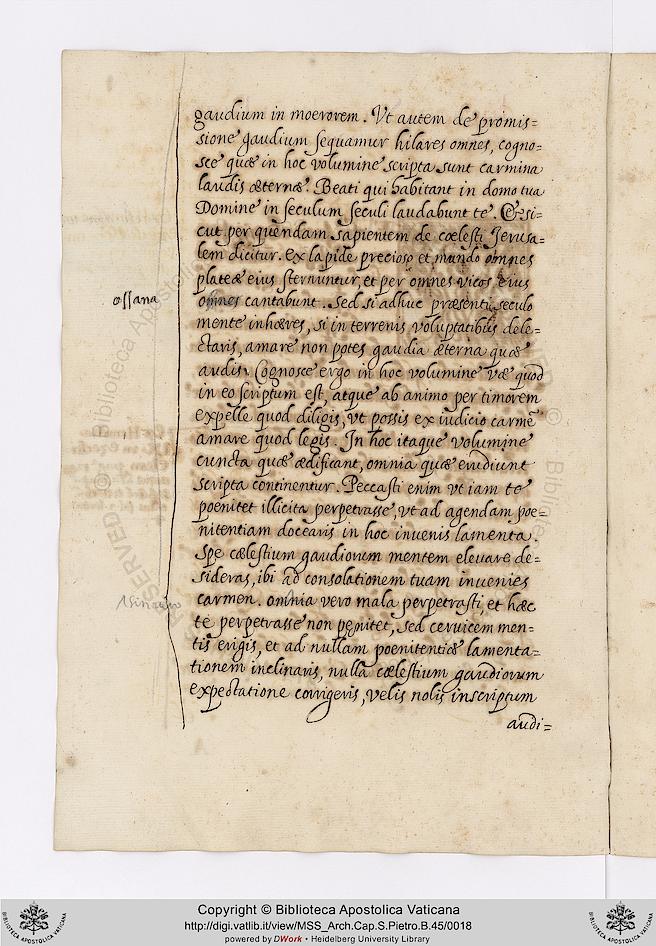 gaudium in moerorem. Vt autem de promis=
sione gaudium sequamur hilares omnes, cogno=
sce quæ in hoc volumine scripta sunt carmina
laudis æternæ. Beati qui habitant in domo tua
Domine in seculum seculi laudabunt te. Et si=
cut per quendam sapientem de cœlesti Jerusa=
lem dicitur. ex lapide precioso et mundo omnes
plateæ eius sternuntur, et per omnes vicos eius
ossana
omnes cantabunt. Sed si adhuc præsenti seculo
mente inhæres, si in terrenis voluptatibus dele=
ctaris, amare non potes gaudia æterna quæ
audis. Cognosce ergo in hoc volumine væ quod
in eo scriptum est, atque ab animo per timorem
expelle quod diligis, vt possis ex iudicio carmē
amare quod legis. In hoc itaque volumine
cuncta quæ ædificant, omnia quæ erudiunt
scripta continentur. Peccasti enim vt iam te
poenitet illicita perpetrasse, vt ad agendam poe=
nitentiam docearis in hoc invenis lamenta.
Spe cælestium gaudiorum mentem elevare de=
sideras, ibi ad consolationem tuam invenies
carmen. omnia vero mala perpetrasti, et hæc
te perpetrasse non penitet, sed cervicem men=
tis erigis, et ad nullam poenitentiæ lamenta=
tionem inclinaris, nulla cælestium gaudiorum
expectatione corrigeris, velis nolis inscriptum
audi=
RESERVED © Biblioteca Apostolica
Copyright © Biblioteca Apostolica Vaticana
http://digi.vatlib.it/view/MSS_Arch.Cap.S.Pietro.B.45/0018
powered by DWork • Heidelberg University Library
BIBLIOTECA APOSTOLICA VATICANA
BIBLIOTECA APOSTOLICA VATICANA